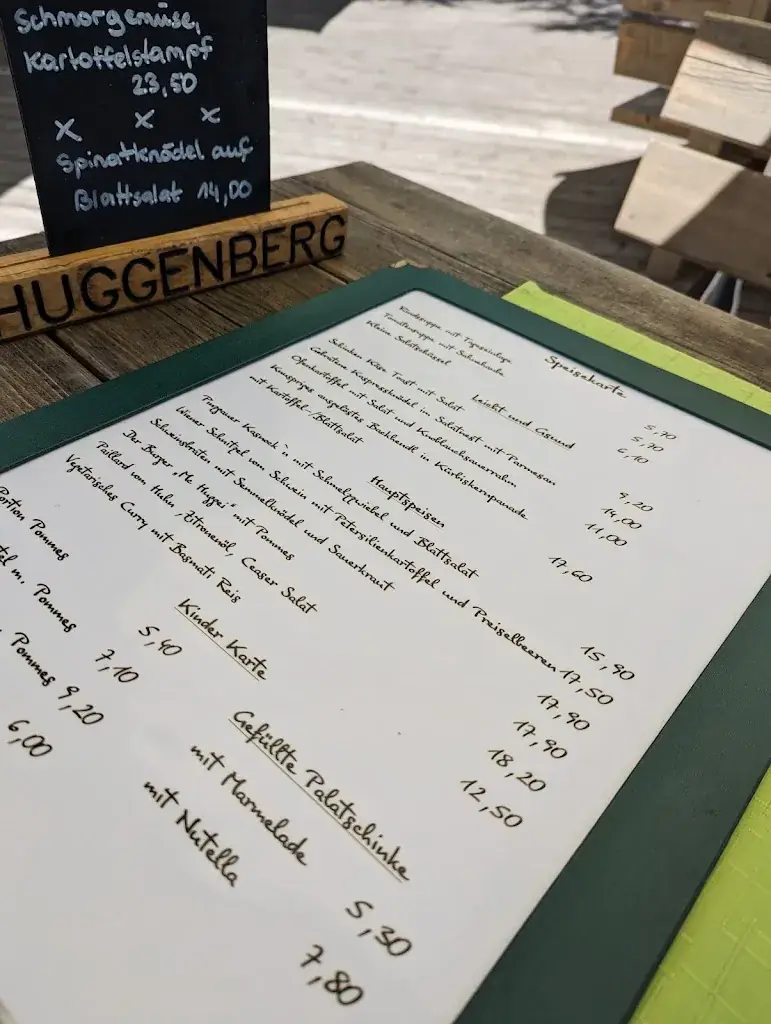 Schmorgemüse,
Kartoffelstampf
23,50
x x x
Spinatknödel auf
Blattsalat 14,00
HUGGENBERG
Speisekarte
Rindsuppe mit Tageseinlage 5,70
Tomatensuppe mit Sahnehaube 5,70
Kleine Salatschüssel 6,10
Leicht und Gsund
Schinken Käse Toast mit Salat 9,20
Gebratene Kaspressknödel in Salatnest mit Parmesan 14,00
Ofenkartoffel mit Salat und Knoblauchsauerrahm 11,00
Knuspriges ausgelöstes Backhendl in Kürbiskernpanade
mit Kartoffel-/Blattsalat 17,60
Hauptspeisen
Pinzgauer Kasnock'n mit Schmelzzwiebel und Blattsalat 15,90
Wiener Schnitzel vom Schwein mit Petersilienkartoffel und Preiselbeeren 17,50
Schweinsbraten mit Semmelknödel und Sauerkraut 17,90
Der Burger „Mc Huggei" mit Pommes 17,90
Paillard vom Huhn, Zitronenöl, Ceaser Salat 18,20
Vegetarisches Curry mit Basmati Reis 12,50
Kinder Karte
Portion Pommes 5,40
m. Pommes 7,10
Pommes 9,20
6,00
Gefüllte Palatschinke
mit Marmelade 5,30
mit Nutella 7,80